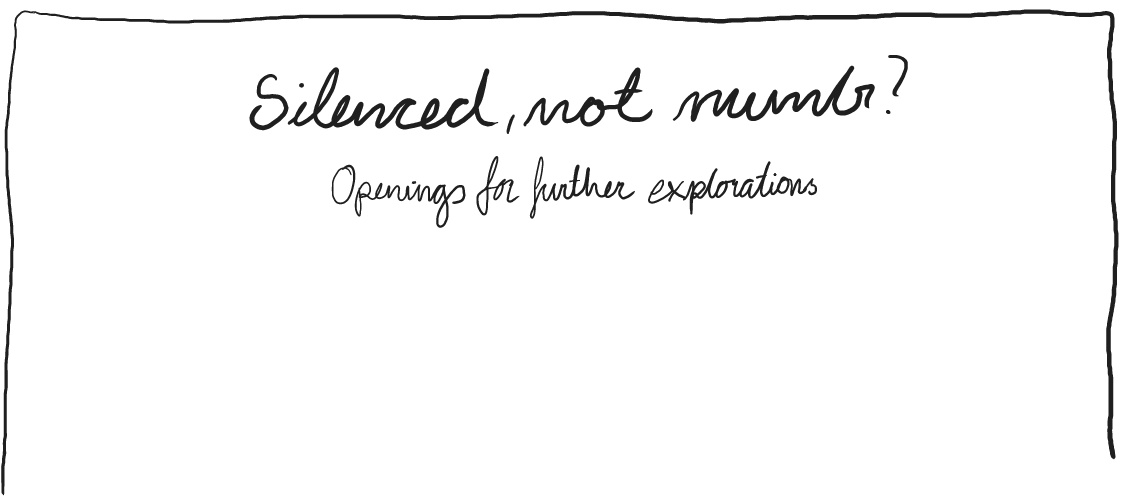 Silenced, not numb?
Openings for further explorations